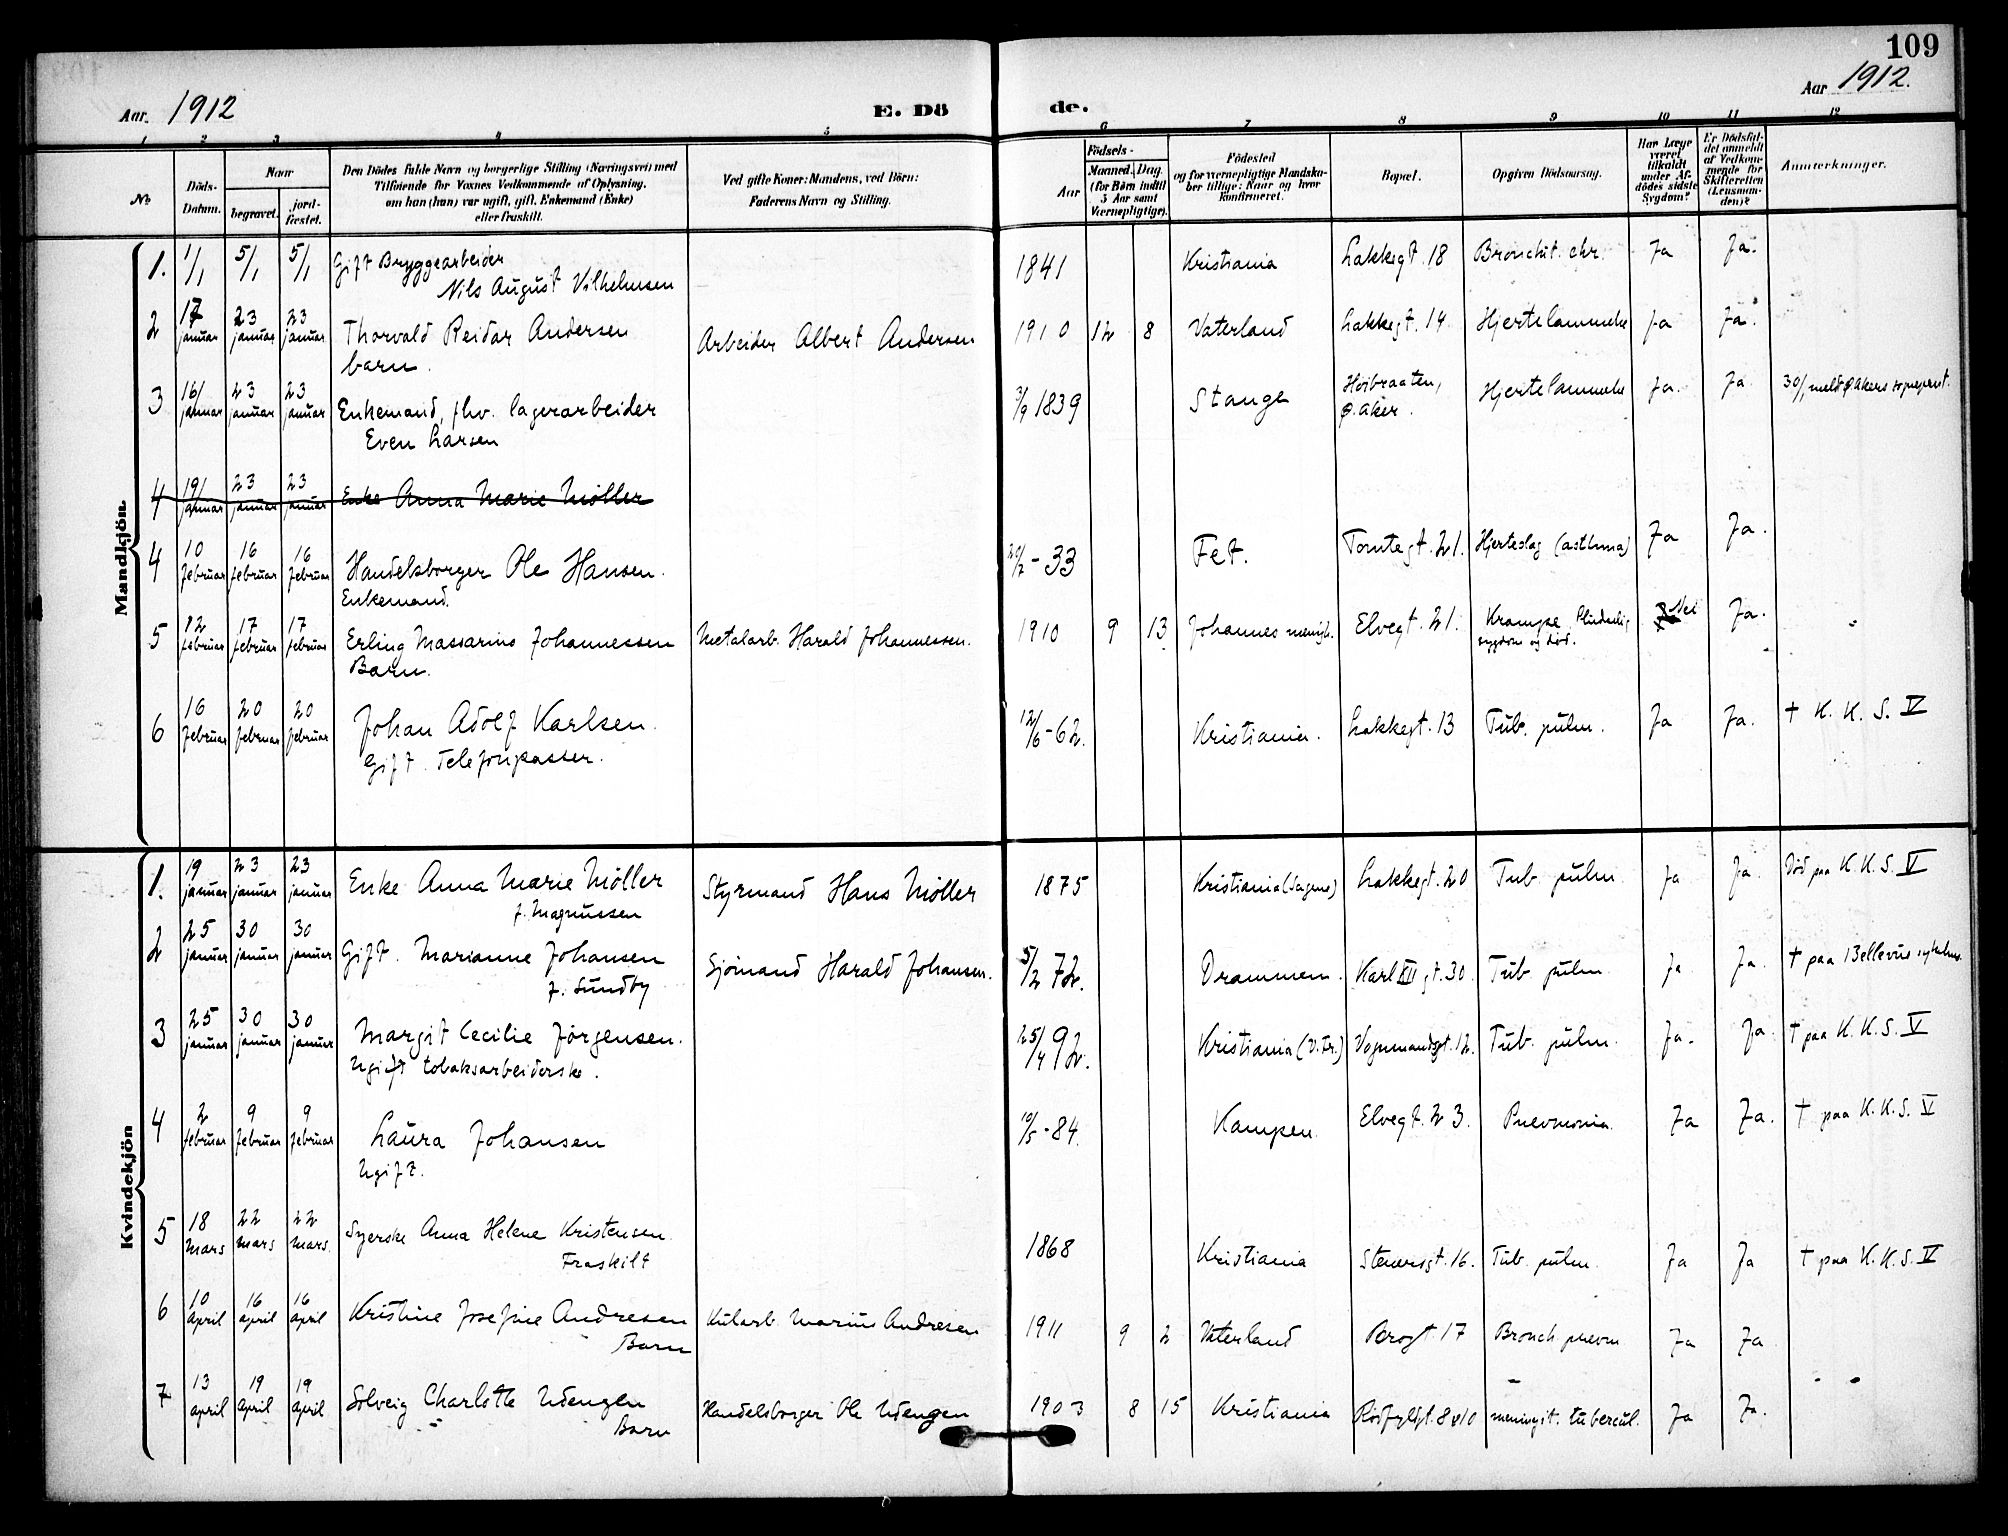 109
Aar. 1912
E. Dö
de.
Aar 1912.
1 2 3 4 5 6 7 8 9 10 11 12
No
Döds-Datum.
Naar
begravet.
jord-fæstet.
Den Dödes fulde Navn og borgerlige Stilling (Næringsvei) med
Tilföiende for Voxnes Vedkommende af Oplysning,
om han (hun) var ugift, gift, Enkemand (Enke)
eller fraskilt.
Ved gifte Koner: Mandens, ved Börn:
Faderens Navn og Stilling.
Födsels-
Aar
Maaned. Dag.
(for Börn indtil
5 Aar samt
Værnepligtige).
Födested
og for værnepligtige Mandska-
ber tillige: Naar og hvor
konfirmeret.
Bopæl.
Opgiven Dödsaarsag.
Har Læge
været
tilkaldt
under Af-
dödes sidste
Sygdom?
Er Dödsfal-
det anmeldt
af Vedkom-
mende for
Skifteretten
(Lensman-
den)?
Anmærkninger.
Mandkjön.
1. 1/1 5/1 5/1 Gift Bryggearbeider 1841 Kristiania Lakkegt. 18 Bronchit. chr. Ja Ja.
Nils August Vilhelmsen
2 17 januar 23 januar 23 januar Thorvald Reidar Andersen Arbeider Albert Andersen 1910 12 8 Vaterland Lakkegt. 14 Hjertelammelse Ja Ja.
barn.
3 16/ januar 23 januar 23 januar Enkemand, fhv. lagerarbeider 3/9 1839 Stange Høibraaten, Ø. Aker. Hjertelammelse Ja. Ja. 30/1 meldt Ø. Akers sogneprest.
Even Larsen
4 19/ januar 23 januar 23 januar Enke Anna Marie Möller
4 10 februar 16 februar 16 februar Handelsborger Ole Hansen. 20/7 - 33 Fet. Tomtegt. 21. Hjerteslag (asthma) Ja Ja.
Enkemand.
5 12 februar 17 februar 17 februar Erling Massarius Johannessen Metalarb. Harald Johannessen. 1910 9 13 Johannes menigh. Elvegt. 21. Krampe Pludselig sygdom og død. Nei Ja.
Barn.
6 16 februar 20 februar 20 februar Johan Adolf Karlsen. 12/6 - 62. Kristiania. Lakkegt. 13 Tub. pulm. Ja Ja. † K. K. S. V
Gift. Telefonpasser.
Kvindekjön
1. 19 januar 23 januar 23 januar Enke Anna Marie Möller Styrmand Hans Möller 1875 Kristiania (Sagene) Lakkegt. 20 Tub. pulm. Ja Ja. Död paa K. K. S. V
f. Magnussen
2 25 januar 30 januar 30 januar Gift. Marianne Johansen Sjömand Harald Johansen. 5/2 72. Drammen. Karl XII gt. 30. Tub. pulm. Ja Ja. † paa Bellevue sykehus.
f. Sundby
3 25 januar 30 januar 30 januar Margit Cecilie Jörgensen. 25/4 92. Kristiania (V. Fr.) Vognmandsgt. 12. Tub. pulm. Ja. Ja. † paa K. K. S. V
Ugift tobaksarbeiderske.
4 2 februar 9 februar 9 februar Laura Johansen 10/5 - 84. Kampen. Elvegt. 23. Pnevmonia. Ja Ja. † paa K. K. S. V
Ugift.
5 18 Mars 22 Mars 22 Mars. Syerske Anna Helene Kristensen. 1868 Kristiania Stenersgt. 16. Tub. pulm. Ja Ja † paa K. K. S. V
Fraskilt
6 10 April 16 April 16 April Kristine Josefine Andresen Kularb. Marius Andresen 1911 9 2 Vaterland Brogt. 17 Bronch pnevm Ja Ja
Barn
7 13 April 19 April 19 April Solveig Charlotte Udengen Handelsborger Ole Udengen 1903 8 15 Kristiania Rödfyldgt. 8 & 10 meningit. tubercul. Ja Ja.
Barn